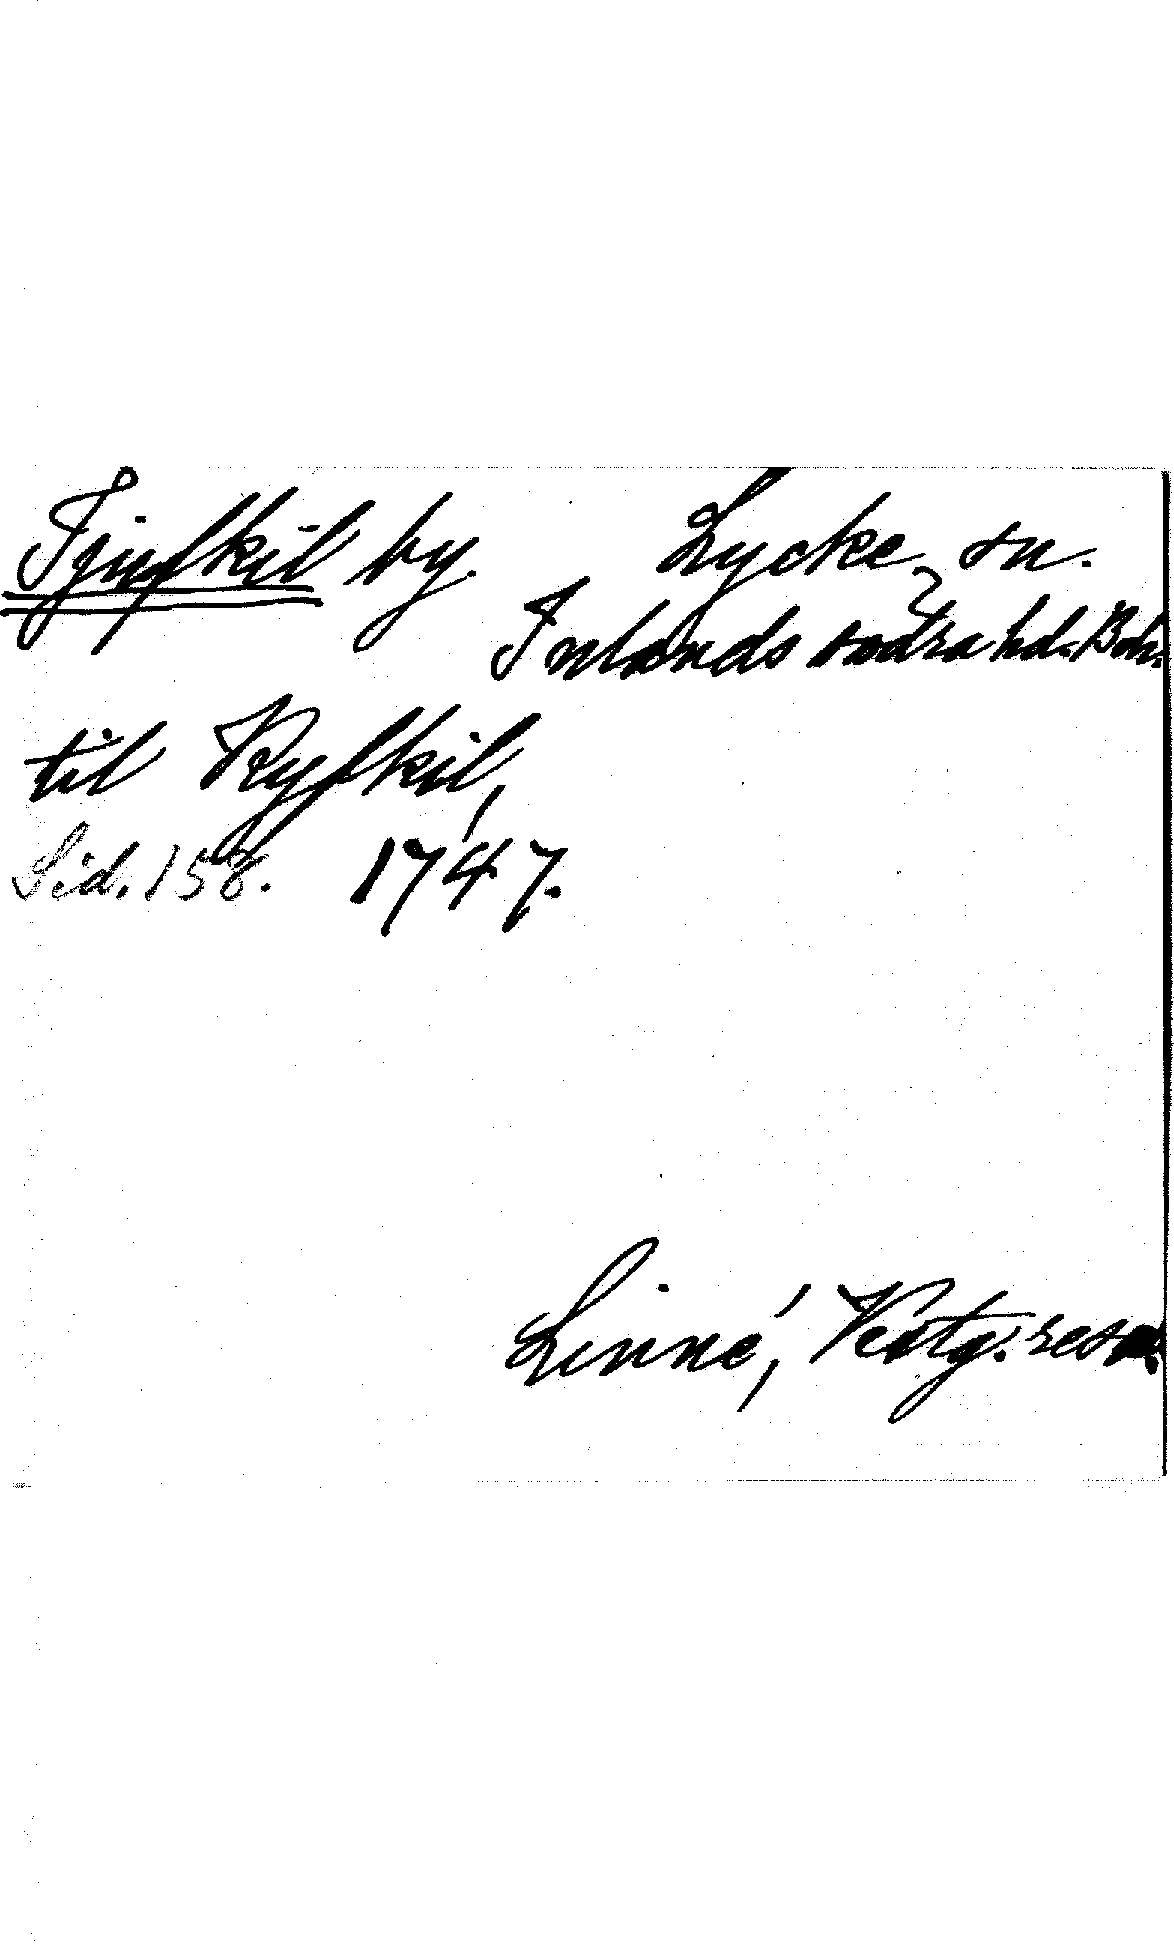 Tjufkil by. Lycke sn.
Inlands södra hd. Boh.
til Kyfkil,
Sid. 158. 1747.
Linné, Vestg. resa.